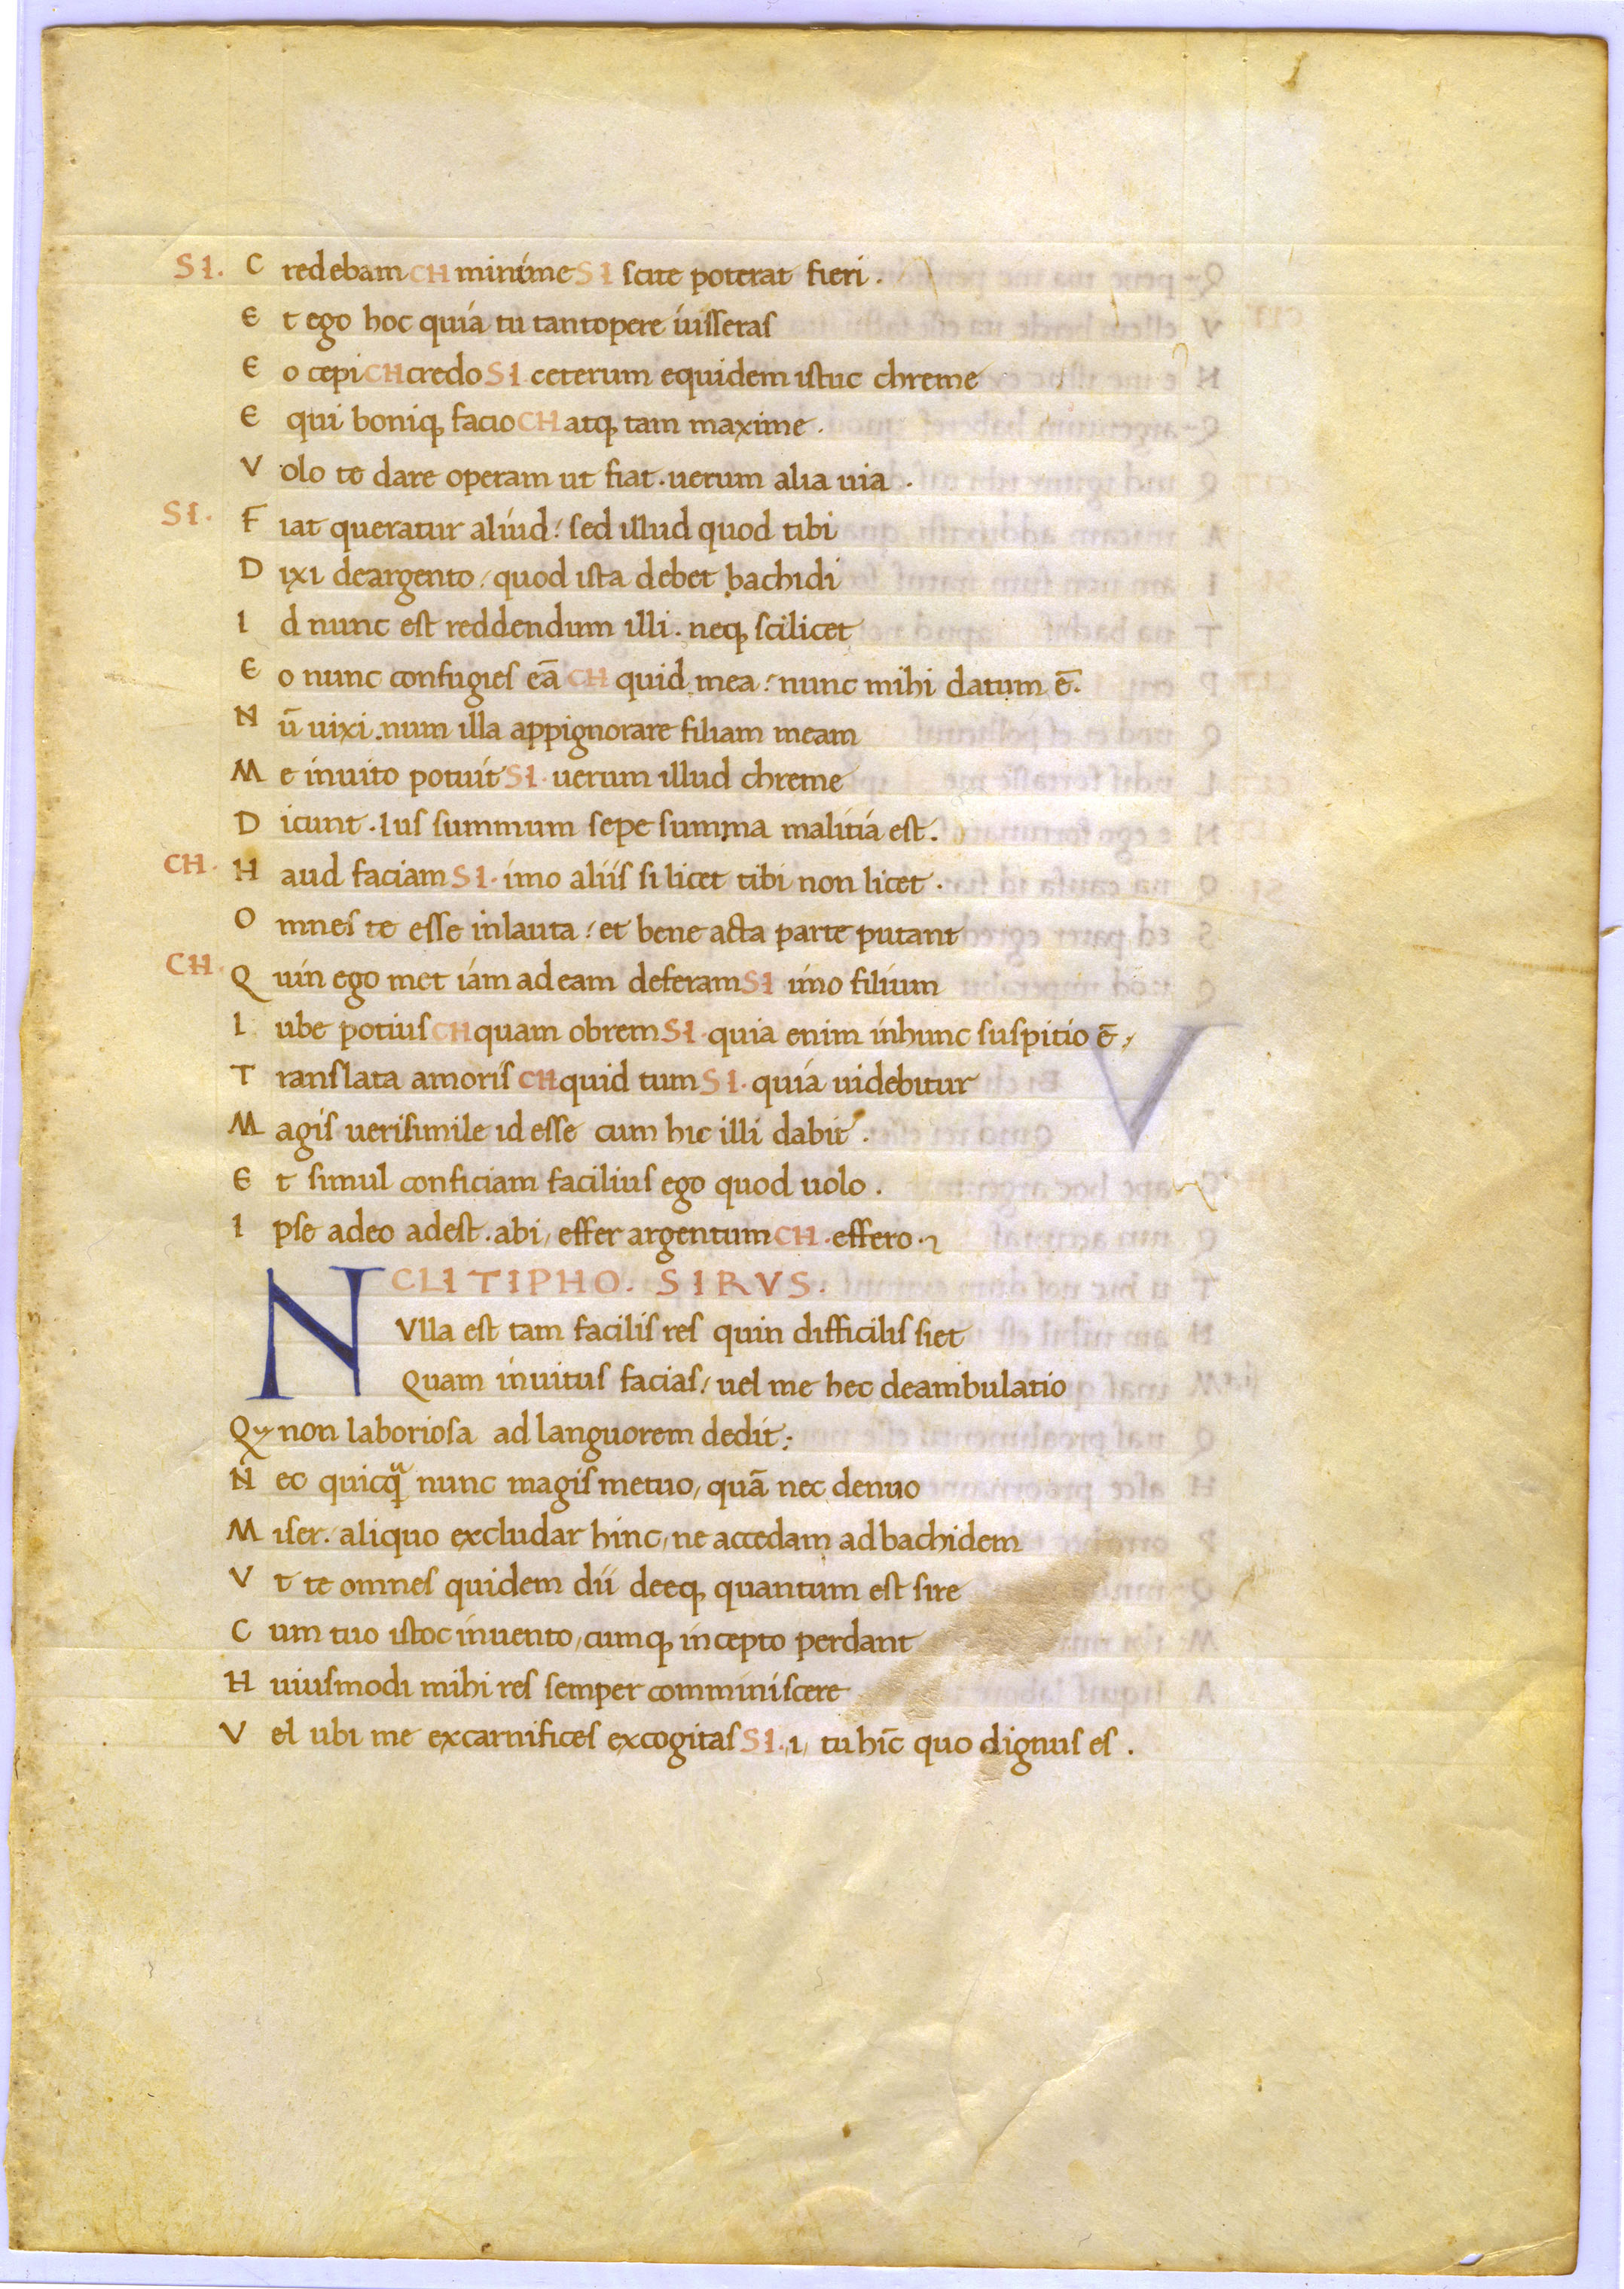 SI. Credebam CH minime SI scite poterat fieri.
Et ego hoc quia tu tantopere iusseras
Eo cepi CH credo SI. ceterum equidem istuc chreme
Equi boniq; facio CH atq; tam maxime.
Volo te dare operam ut fiat. uerum alia uia.
SI. Fiat queratur aliud / sed illud quod tibi
Dixi deargento / quod ista debet bachidi
Id nunc est reddendum illi. neq; scilicet
Eo nunc confugies eā CH quid mea / nunc mihi datum ē.
Nū uixi. num illa appignorare filiam meam
Me inuito potuit SI. uerum illud chreme
Dicunt. Ius summum sepe summa malitia est.
CH. Haud faciam SI. imo aliis si licet tibi non licet.
Omnes te esse inlauta / et bene acta parte putant
CH. Quin ego met iam ad eam deferam SI imo filium
Iube potius CH quam obrem SI. quia enim inhunc suspitio ē /
Translata amoris CH quid tum SI. quia uidebitur
Magis uerisimile id esse cum hic illi dabit.
Et simul conficiam facilius ego quod uolo.
Ipse adeo adest. abi / effer argentum CH. effero.
CLITIPHO. SIRVS.
NVlla est tam facilis res quin difficilis siet
Quam inuitus facias / uel me hec deambulatio
Qȝ non laboriosa ad languorem dedit;
Nec quicqᵃ nunc magis metuo / quā nec denuo
Miser / aliquo excludar hinc / ne accedam ad bachidem
Vt te omnes quidem dii deeq; quantum est sire
Cum tuo istoc inuento / cumq; incepto perdant
Huiusmodi mihi res semper comminiscere
Vel ubi me excarnifices excogitas SI. i / tu hīc quo dignus es.